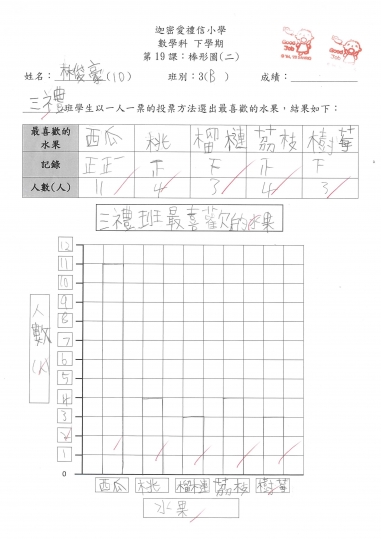 迦密愛禮信小學
數學科 下學期
第19課：棒形圖(二)
Good Job
Good Job
姓名： 林俊豪(10) 班別：3(B) 成績：
三禮班學生以一人一票的投票方法選出最喜歡的水果，結果如下：
最喜歡的水果 西瓜 桃 榴槤 荔枝 樹莓
記錄 正正一
人數(人) 11 4 3 4 3
三禮班最喜歡的水果
12
11
10
9
8
7
6
5
4
3
2
1
0
人數(人)
西瓜 桃 榴槤 荔枝 樹莓
水果